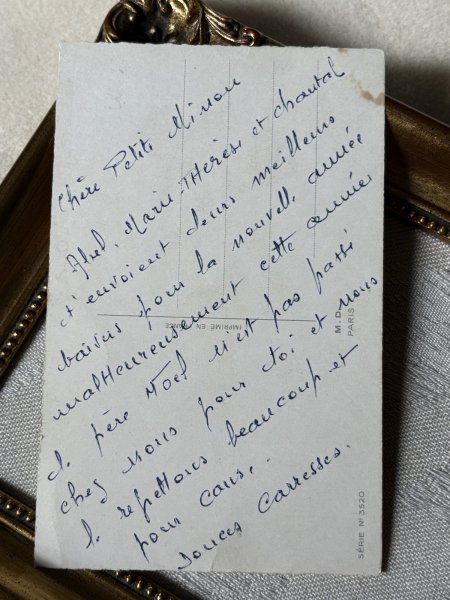 Chère Petite Minou
Abel. Marie. THérèse et Chantal
t'envoient leurs meilleurs
baisers pour la nouvelle année
malHeureusement cette année
le père Noël n'est pas passé
chez nous pour toi et nous
le regettons beaucoup et
pour cause.
Douces Carresses.
IMPRIMÉ EN FRANCE
M. D.
PARIS
SÉRIE N° 3520